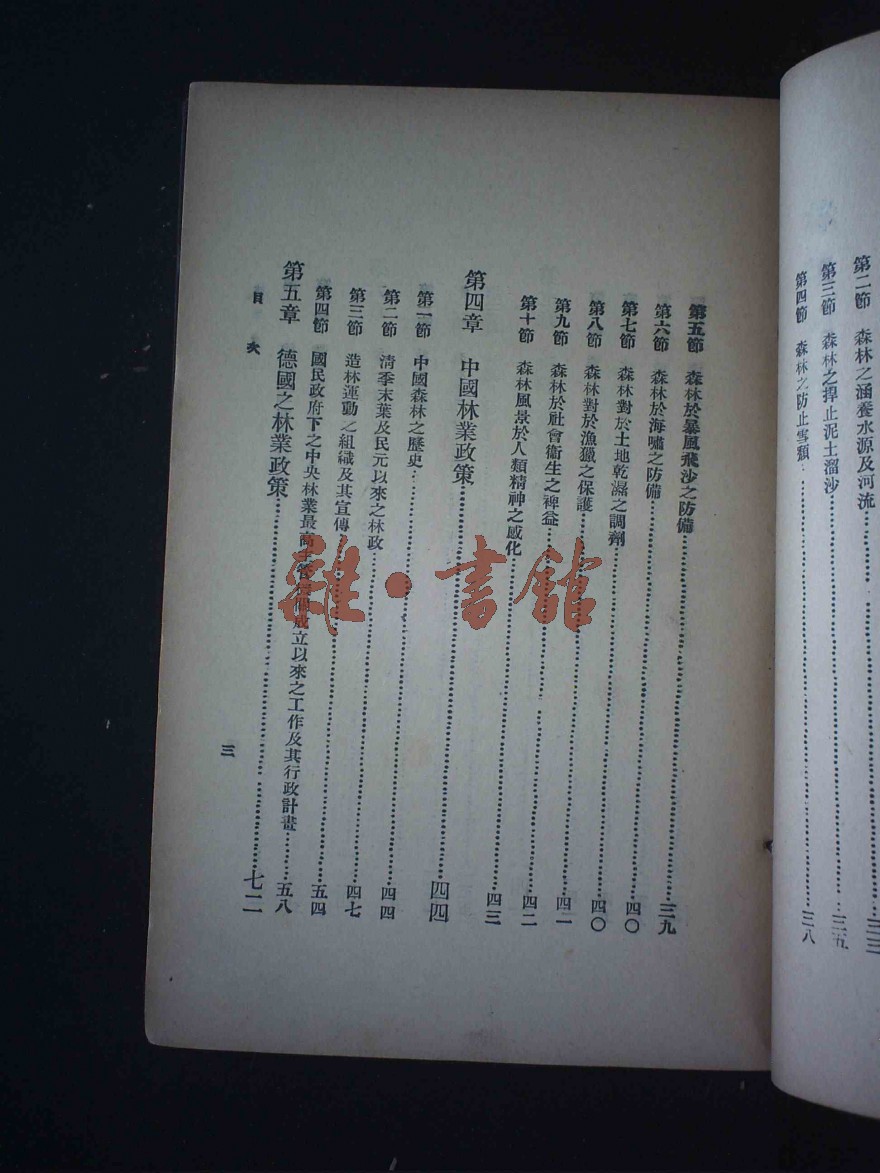 第二節 森林之涵養水源及河流……三三
第三節 森林之捍止泥土溜沙……三五
第四節 森林之防止雪頹……三八
第五節 森林於暴風飛沙之防備……三九
第六節 森林於海嘯之防備……四〇
第七節 森林對於土地乾濕之調劑……四〇
第八節 森林對於漁獵之保護……四二
第九節 森林於社會衞生之裨益……四二
第十節 森林風景於人類精神之感化……四三
第四章 中國林業政策……四四
第一節 中國森林之歷史……四四
第二節 清季末葉及民元以來之林政……四七
第三節 造林運動之組織及其宣傳……五四
第四節 國民政府下之中央林業最高主管機關成立以來之工作及其行政計畫……五八
第五章 德國之林業政策……七二
目次
三
雜·書館